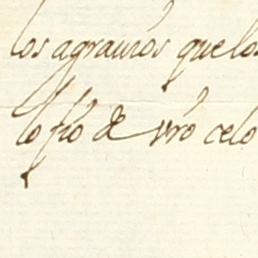 los agrauios que los
lo fio de vro celo